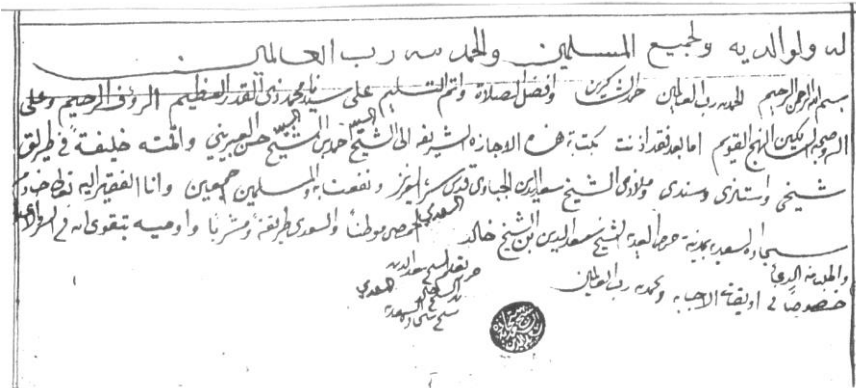 له ولوالديه ولجميع المسلمين والحمد لله رب العالمين
بسم الله الرحمن الرحيم الحمد لله رب العالمين حمد الشاكرين وافضل الصلاة واتم التسليم على سيدنا محمد ذي القدر العظيم الرؤف الرحيم وعلى
اله وصحبه السالكين النهج القويم اما بعد فقد اذنت بكتابة هذه الاجازه الشريفه الى الشيخ احمد بن الشيخ حسن واقمته خليفة في طريق
شيخي واستاذي وسندي وملاذي الشيخ سعد الدين الجباوي قدس سره العزيز ونفعنا به والمسلمين اجمعين وانا الفقير اليه تعالى خادم
سجادة السعديه بمدينة حمص المحمية الشيخ سعد الدين ابن الشيخ خالد السعدي الحمصي موطنا والسعدي طريقة ومشربا واوصيه بتقوى الله في السر والعلن
واطلب منه الدعا
خصوصا في اويقات الاجابه والحمد لله رب العالمين
سعد الدين
السعدي
شيخ سجادة السعديه